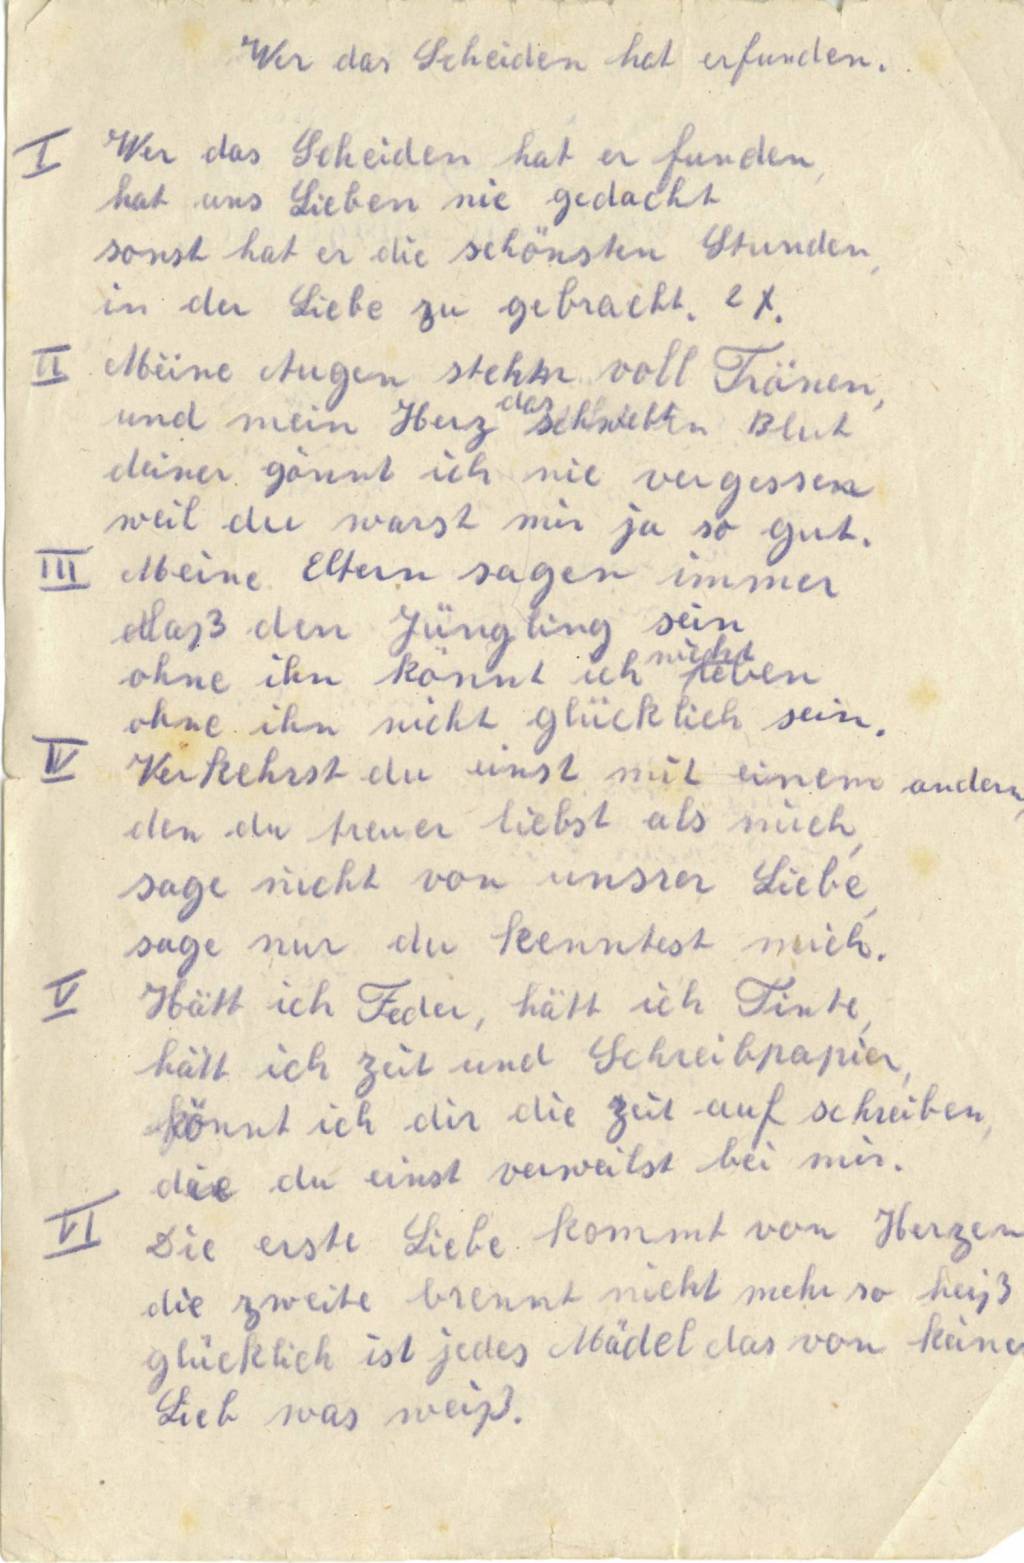 Wer das Scheiden hat erfunden.
I Wer das Scheiden hat er funden,
hat ans Lieben nie gedacht
sonst hat er die schönsten Stunden,
in der Liebe zu gebracht. 2 X.
II Meine Augen stehen voll Tränen,
und mein Herz das schwebt in Blut
deiner gönnt ich nie vergessen
weil du warst mir ja so gut.
III Meine Eltern sagen immer
daß den Jüngling sein
ohne ihn könnt ich nicht leben
ohne ihn nicht glücklich sein.
IV Verkehrst du einst mit einem andern,
den du treuer liebst als mich,
sage nicht von unsrer Liebe,
sage nur du kenntest mich.
V Hätt ich Feder, hätt ich Tinte,
hätt ich zeit und Schreibpapier,
könnt ich dir die zeit auf schreiben,
die du einst verweilst bei mir.
VI Die erste Liebe kommt von Herzen
die zweite brennt nicht mehr so heiß
glücklich ist jedes Mädel das von keiner
Lieb was weiß.